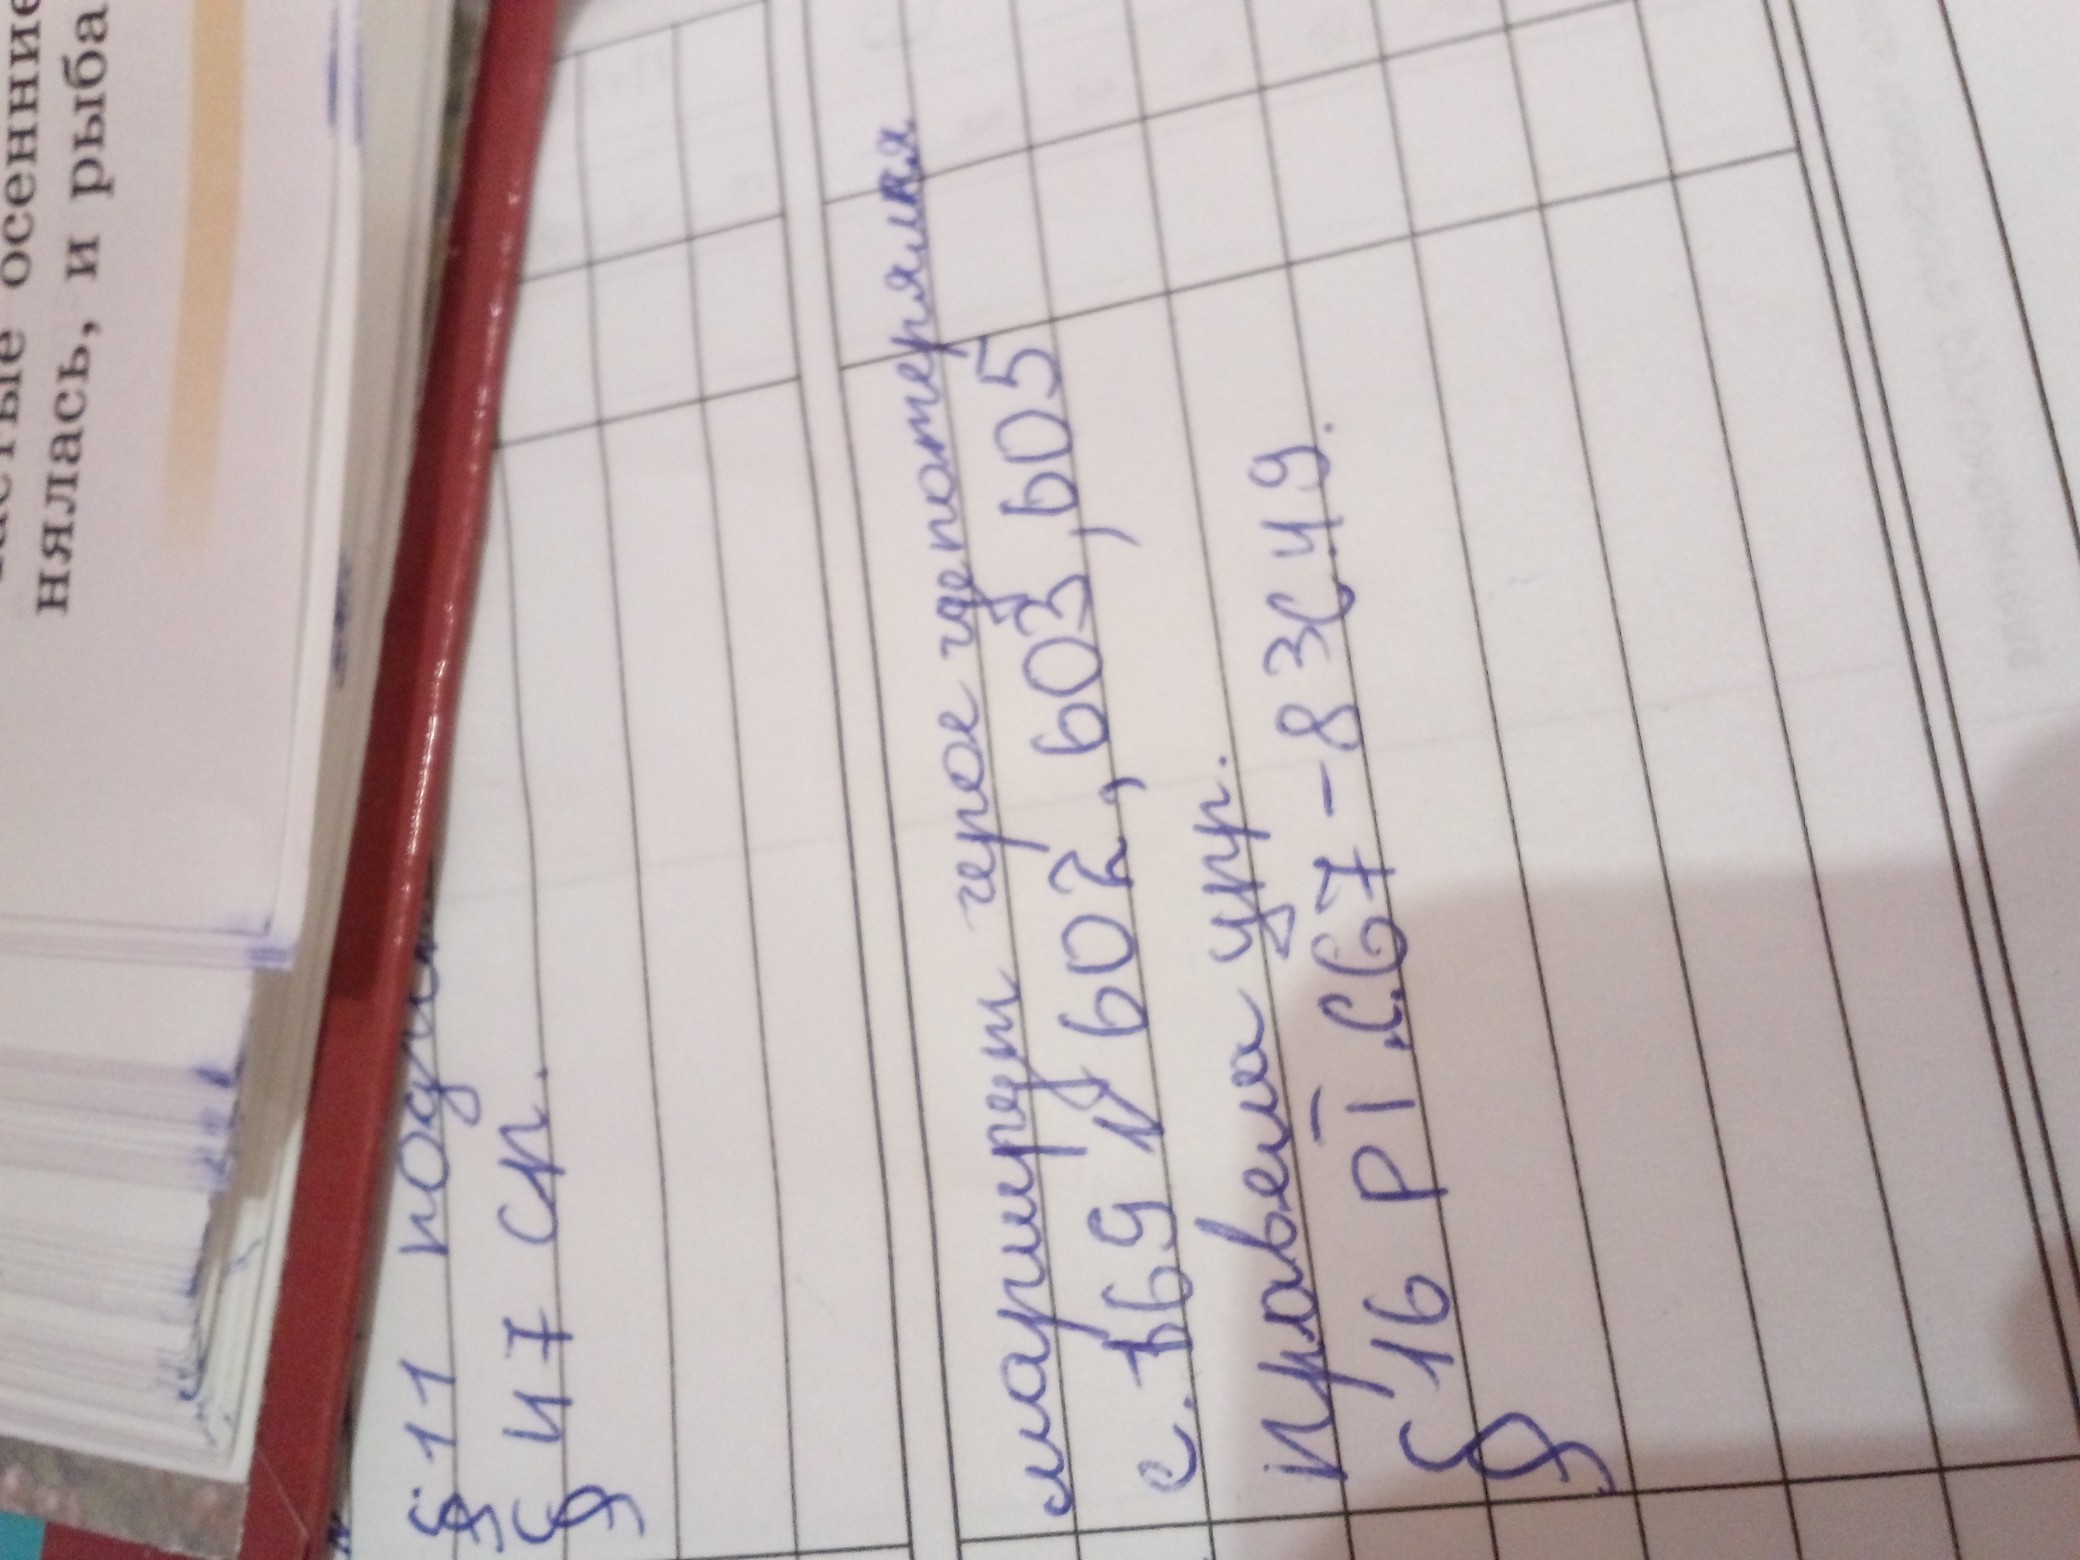 осенние
нялась, и рыба
§ 11
§ 47 сл.
маршрут герое где потерялмя
с. 169 № 602, 603, 605
Правела упр.
§ 16 РТ с. 67 - 8 3(49.